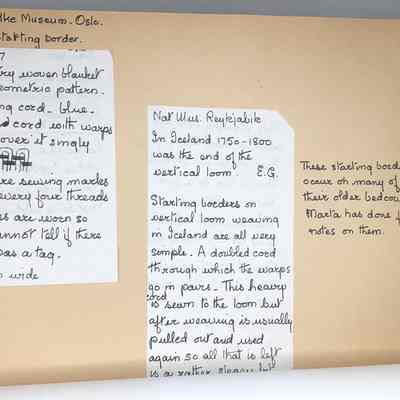 ke Museum. Oslo.
starting border.
ry woven blanket
eometric pattern.
ng cord - blue.
d cord with warps
over it singly
re sewing marks
every four threads
s are worn so
annot tell if there
was a tag.
wide
Nat Mus. Reykjabik
In Iceland 1750-1800
was the end of the
vertical loom. E.G.
Starting borders on
vertical loom weaving
in Iceland are all very
simple. A doubled cord
through which the warps
go in pairs. This heavy
cord
is sewn to the loom but
after weaving is usually
pulled out and used
again so all that is left
is a rather
These starting bord
occur on many of
their older bedcov
Marta has done
notes on them.